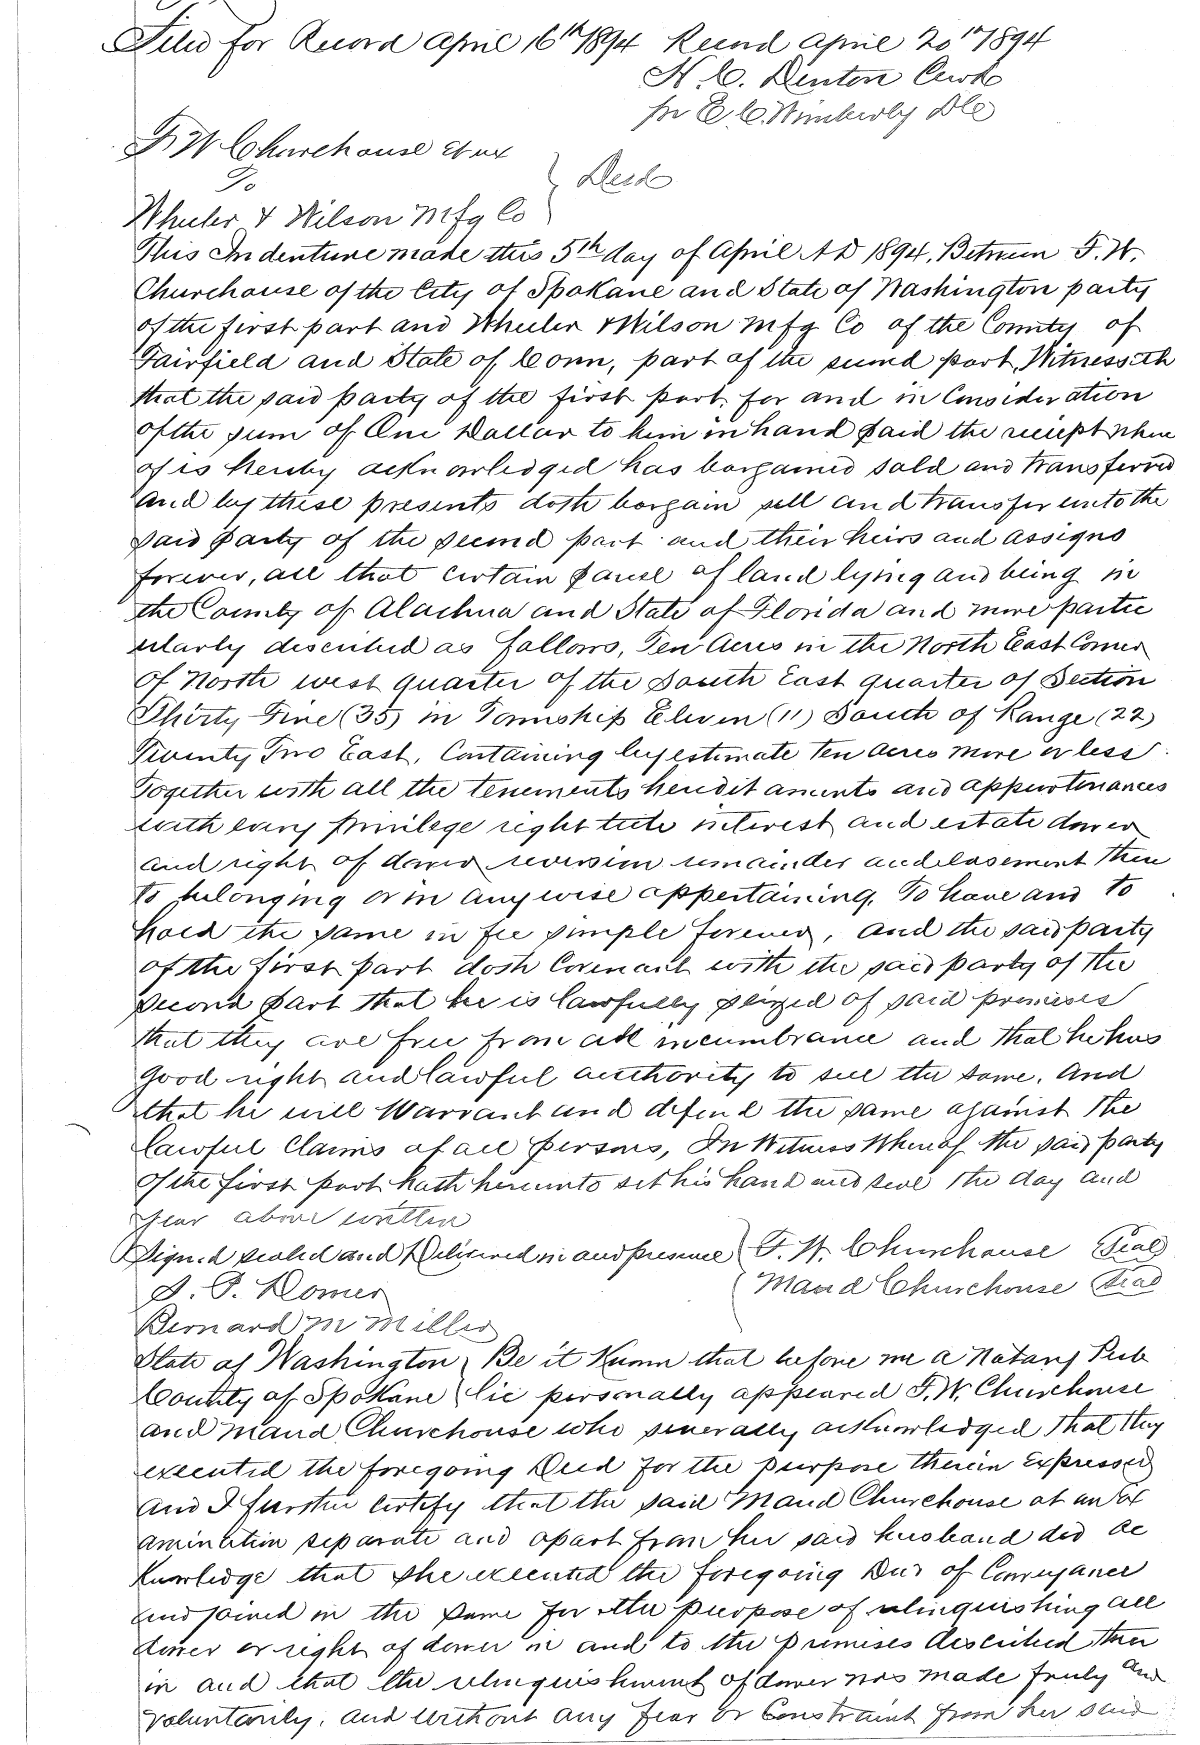 Filed for Record April 16th 1894 Recond April 20th 1894
H. C. Denton Clerk
per E. C. Wimberly DC
F W Churchouse et ux
To
Deed
Wheeler & Wilson Mfg Co
This Indenture made this 5th day of April A D 1894, Between F. W.
Churchouse of the City of Spokane and State of Washington party
of the first part and Wheeler & Wilson Mfg Co of the County of
Fairfield and State of Conn, part of the second part, Witnesseth
that the said party of the first part, for and in Consideration
of the sum of One Dollar to him in hand paid the reciept where
of is hereby acknowledged has bargained sold and transferred
and by these presents doth bargain sell and transfer unto the
said party of the second part and their heirs and assigns
forever, all that certain parcel of land lying and being in
the County of Alachua and State of Florida and more partic
ularly described as follows, Ten Acres in the North East Corner
of North west quarter of the South East quarter of Section
Thirty Five (35) in Township Eleven (11) South of Range (22)
Twenty Two East, Containing by estimate ten acres more or less
Together with all the tenements heredit aments and appurtenances
with every privilege right title interest and estate dower
and right of dower reversion remainder and easement there
to belonging or in any wise appertaining, To have and to
hold the same in fee simple forever, and the said party
of the first part doth Covenant with the said party of the
second part that he is lawfully seized of said premises
that they are free from all incumbrance and that he has
good right and lawful authority to sell the same. And
that he will Warrant and defend the same against the
lawful Claims of all persons, In Witness Whereof the said party
of the first part hath hereunto set his hand and seal the day and
year above written
Signed sealed and Delivered in and presence F. W. Churchouse Seal
J. P. Domer Maud Churchouse Seal
Bernard M Miller
State of Washington Be it Known that before me a Notary Pub
County of Spokane lic personally appeared F. W. Churchouse
and Maud Churchouse who severally acknowledged that they
executed the foregoing Deed for the purpose therein Expressed
And I further Certify that the said Maud Churchouse at an Ex
amination separate and apart from her said husband did ac
knowledge that she executed the foregoing Deed of Conveyance
and joined in the same for the purpose of relinquishing all
dower or right of dower in and to the premises described there
in and that the relinquishment of dower was made freely and
voluntarily, and without any fear or Constraint from her said